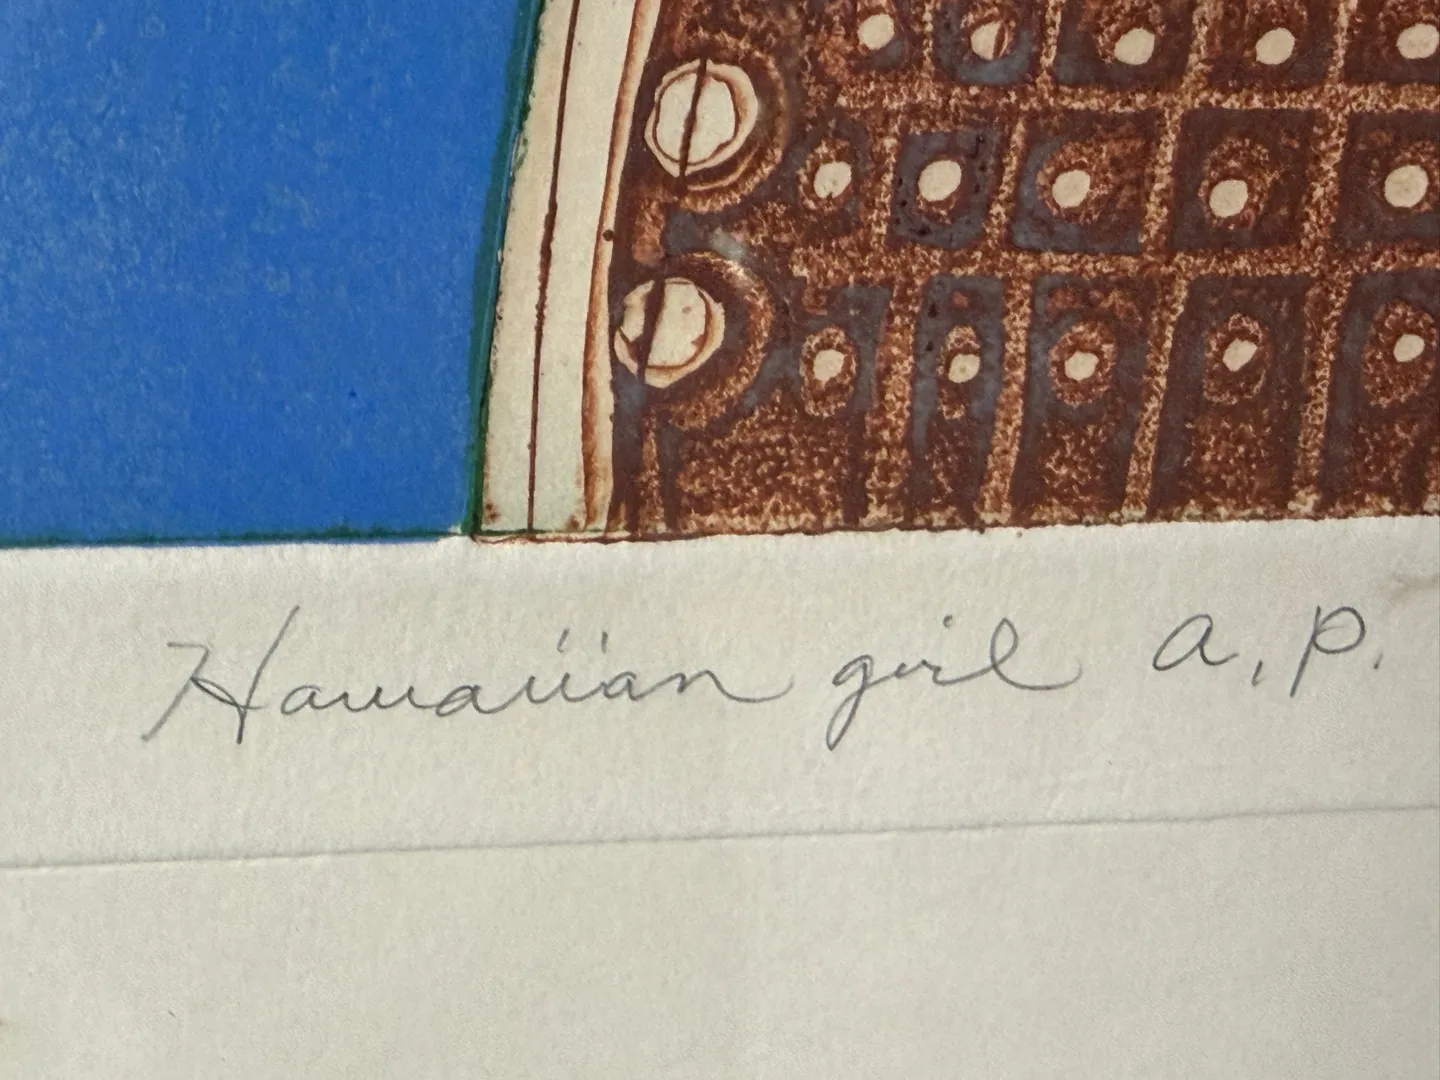 Hawaiian girl a.p.